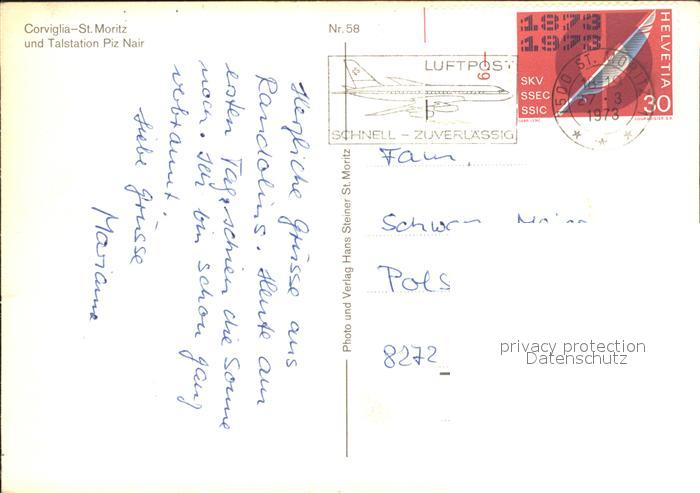 Corviglia–St. Moritz
und Talstation Piz Nair
Nr. 58
LUFTPOST
SCHNELL – ZUVERLÄSSIG
1873
1973
SKV
SSEC
SSIC
HELVETIA
30
7500 ST. MORITZ
7. 3
1973
Photo und Verlag Hans Steiner St. Moritz
Herzliche Grüsse aus
Randolins. Heute am
ersten Tag, schien die Sonne
nur. Ich bin schon ganz
verbrannt.
Liebe Grüsse
Marianne
Fam.
Pols
8272
privacy protection
Datenschutz